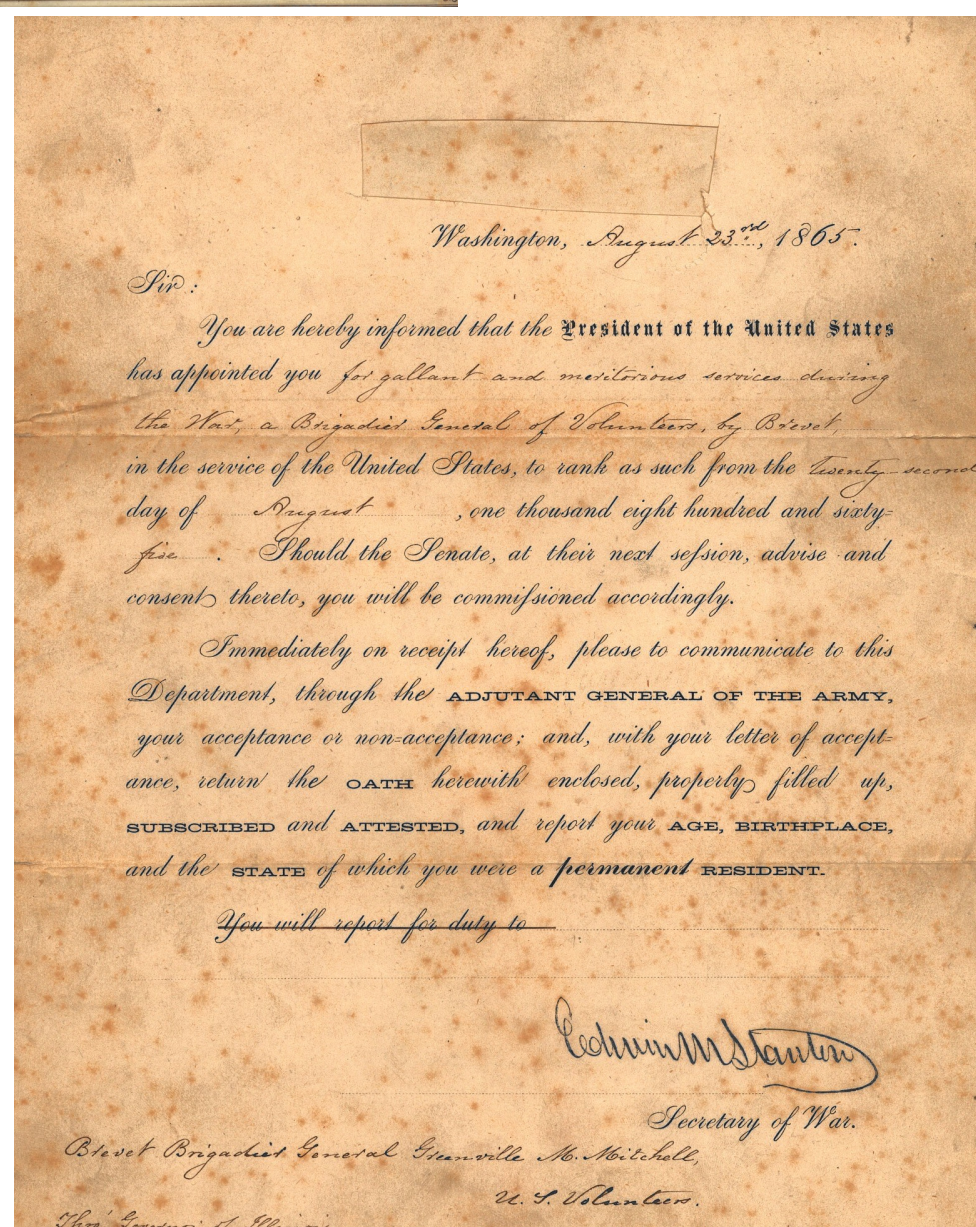 Washington, August 23rd, 1865.
Sir:
You are hereby informed that the President of the United States
has appointed you for gallant and meritorious services during
the War, a Brigadier General of Volunteers, by Brevet,
in the service of the United States, to rank as such from the twenty-second
day of August, one thousand eight hundred and sixty-
five. Should the Senate, at their next session, advise and
consent thereto, you will be commissioned accordingly.
Immediately on receipt hereof, please to communicate to this
Department, through the ADJUTANT GENERAL OF THE ARMY,
your acceptance or non-acceptance; and, with your letter of accept-
ance, return the OATH herewith enclosed, properly filled up,
SUBSCRIBED and ATTESTED, and report your AGE, BIRTHPLACE,
and the STATE of which you were a permanent RESIDENT.
You will report for duty to
Edwin M Stanton
Secretary of War.
Brevet Brigadier General Greenville M. Mitchell,
U. S. Volunteers.
Thro' Governor of Illinois